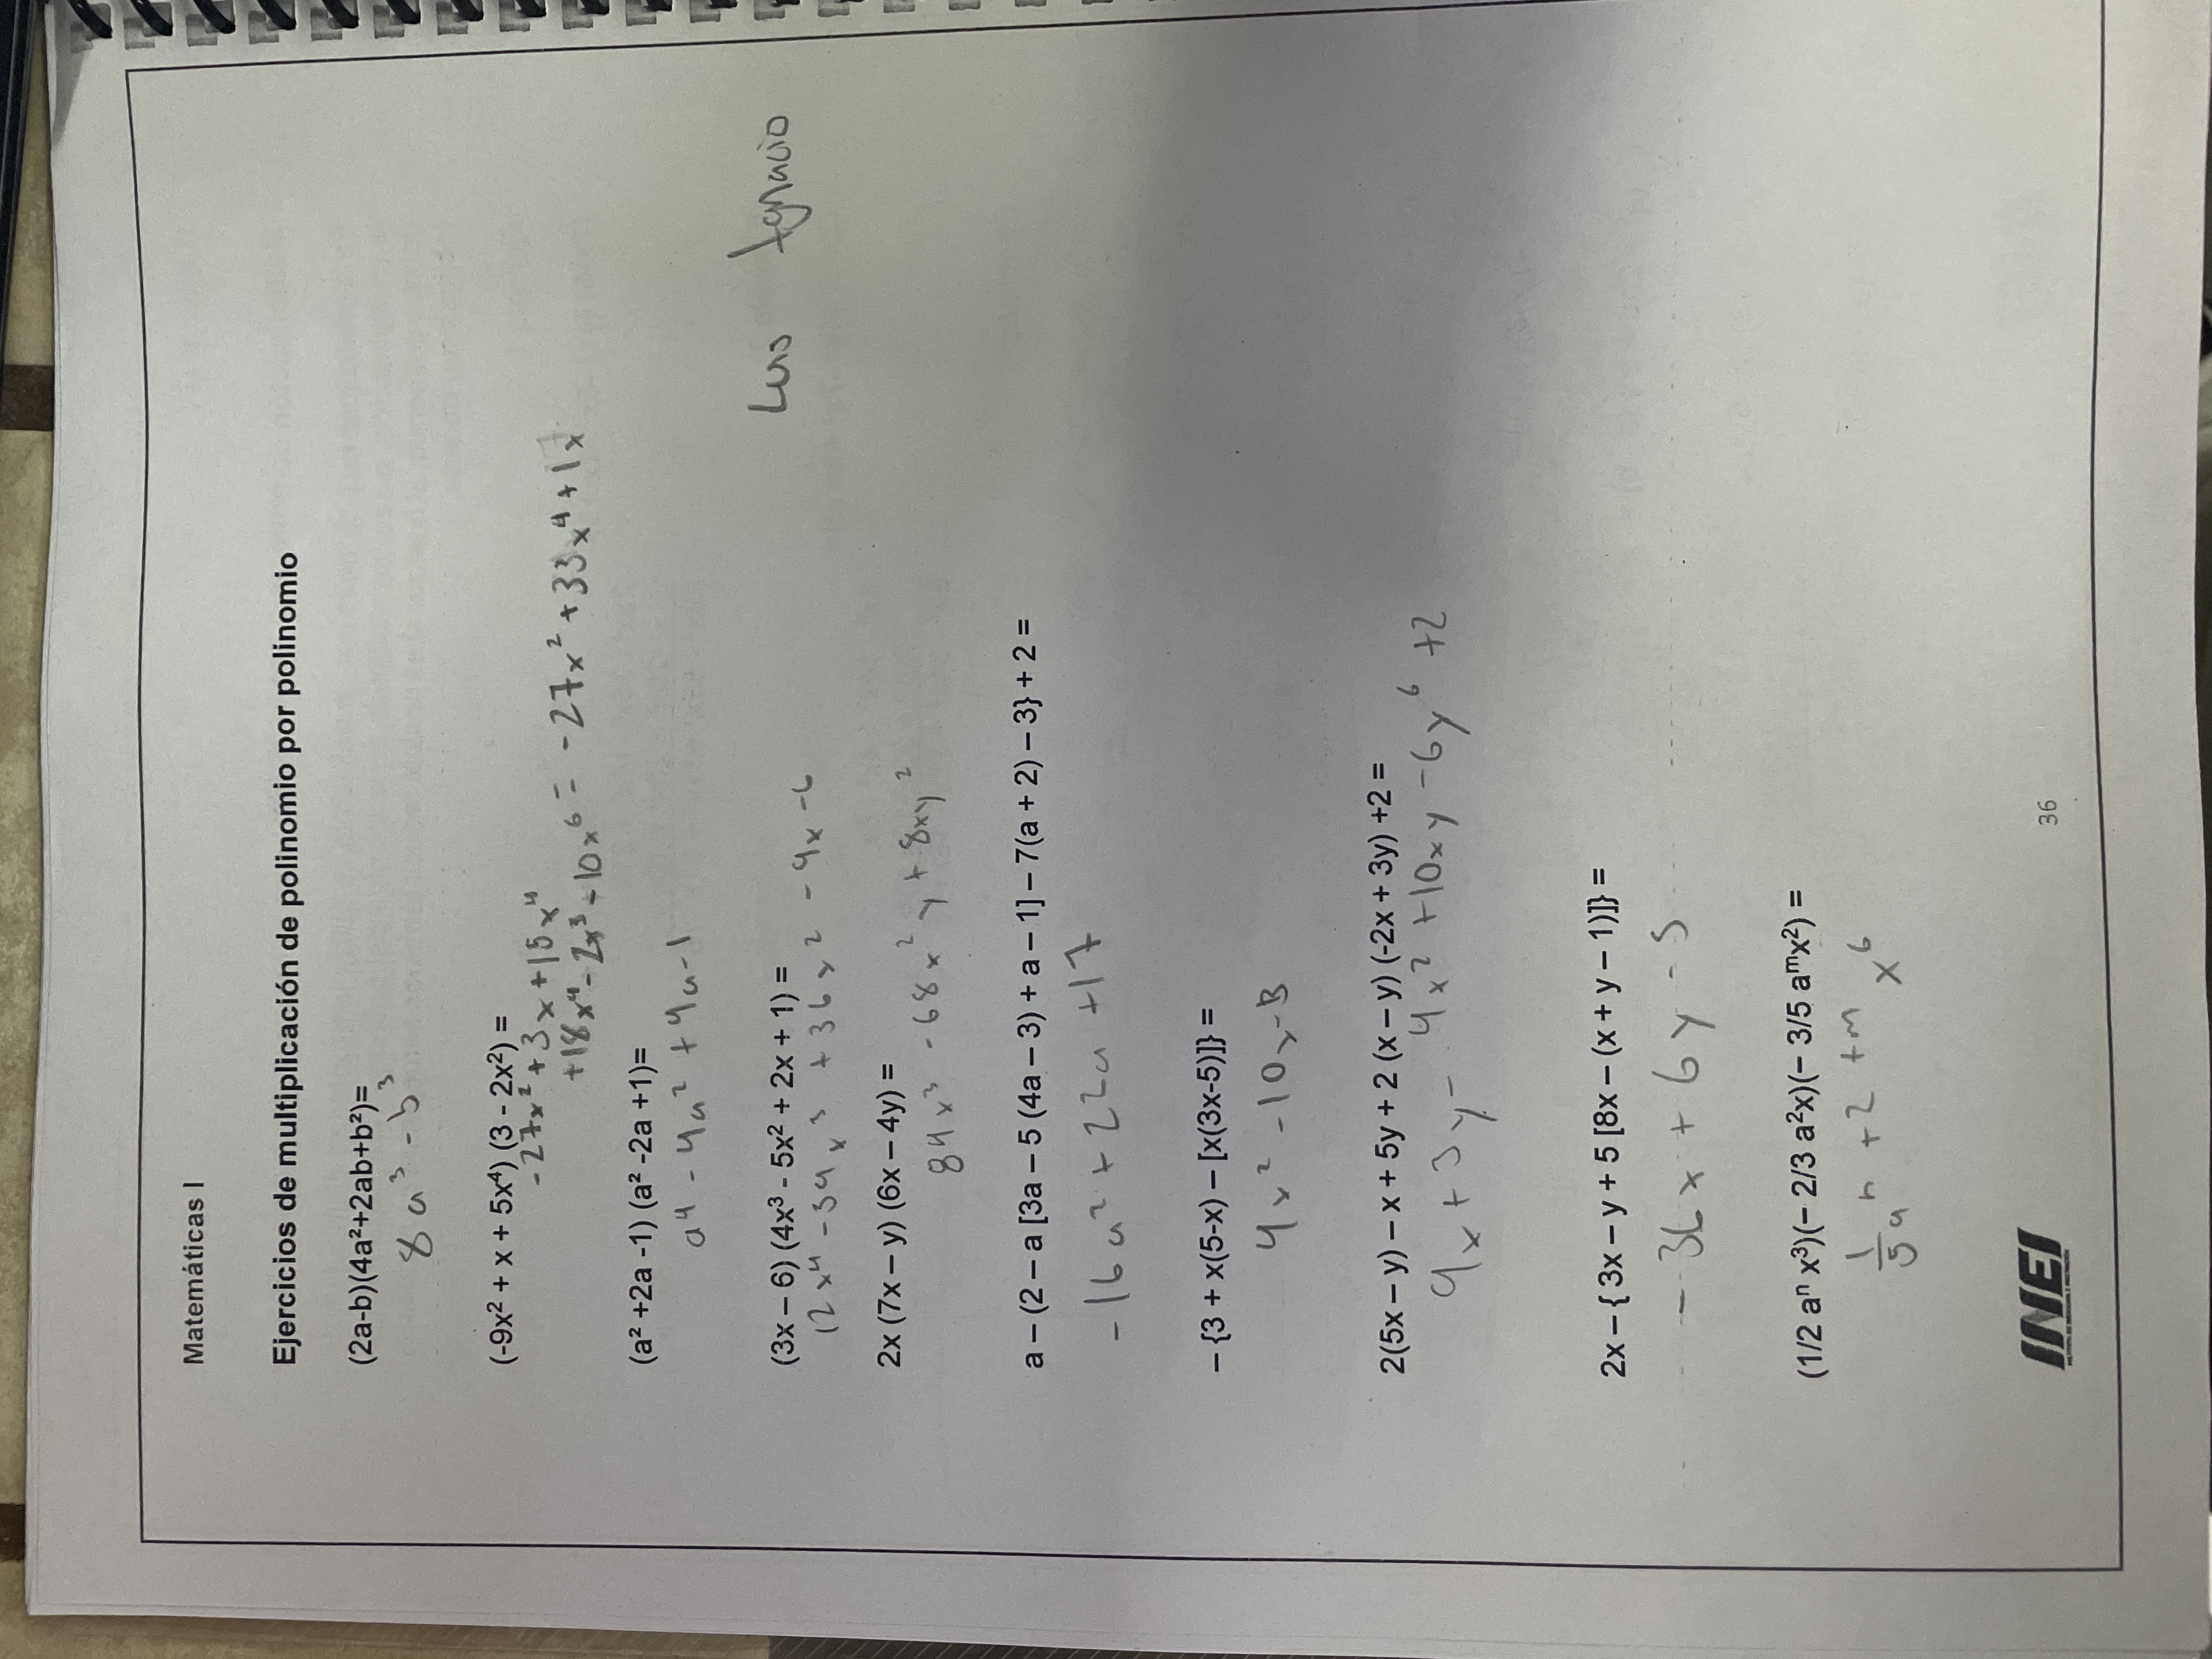 Matemáticas I
Ejercicios de multiplicación de polinomio por polinomio
(2a-b)(4a²+2ab+b²)=
8a³ - b³
(-9x² + x + 5x⁴) (3 - 2x²) =
-27x² + 3x + 15x⁴
+18x⁴ - 2x³ - 10x⁶ = -27x² + 33x⁴ + 1x
(a² +2a -1) (a² -2a +1)=
a⁴ - 4a² + 4a - 1
(3x – 6) (4x³ - 5x² + 2x + 1) =
12x⁴ - 39x³ + 36x² - 9x - 6
Luis Ignacio
2x (7x – y) (6x – 4y) =
84x³ - 68x²y + 8xy²
a – (2 – a [3a – 5 (4a – 3) + a – 1] – 7(a + 2) – 3} + 2 =
-16a² + 22a + 17
– {3 + x(5-x) – [x(3x-5)]} =
4x² - 10x - 3
2(5x – y) – x + 5y + 2 (x – y) (-2x + 3y) +2 =
9x + 3y - 4x² + 10xy - 6y⁶ + 2
2x – { 3x – y + 5 [8x – (x + y – 1)]} =
- 36x + 6y - 5
(1/2 aⁿ x³)(– 2/3 a²x)(– 3/5 aᵐx²) =
1/5 aⁿ + 2 + m x⁶
INEI
36